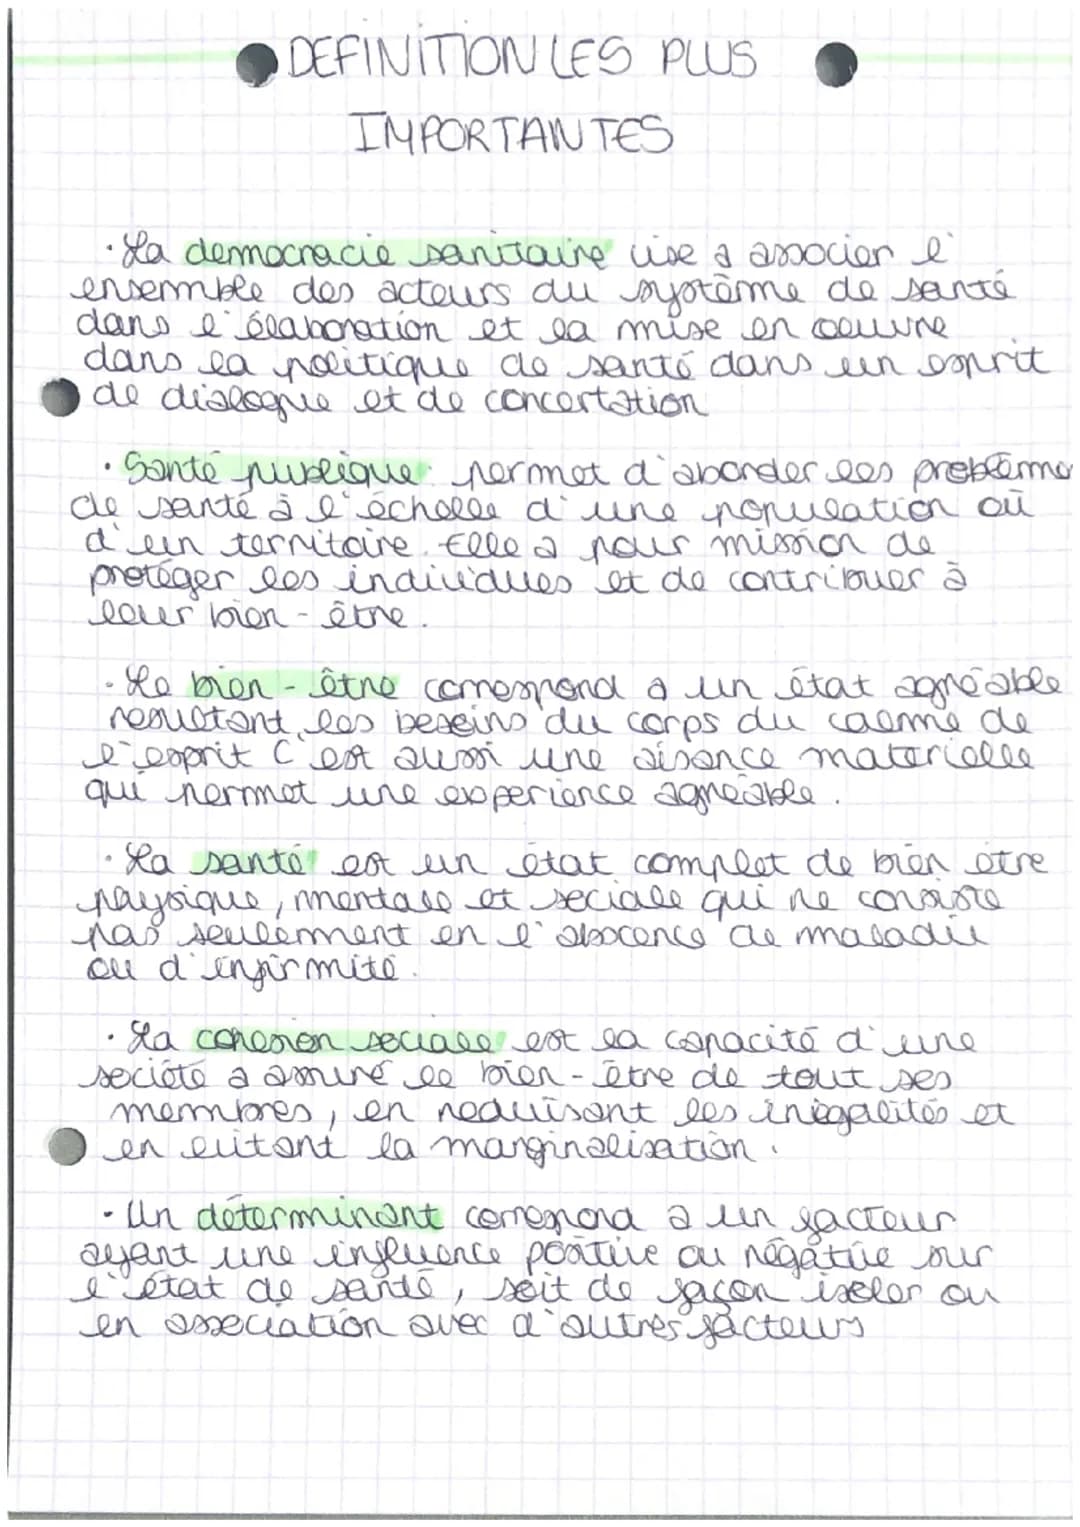 DEFINITION LES PLUS
IMPORTANTES
· La democracie sanitaire vise a associer l'
ensemble des acteurs du système de santé
dans l'élaboration et la mise en oeuvre
dans la politique de santé dans un esprit
de dialogue et de concertation
· Santé publique permet d'aborder les problème
de santé à l'échelle d'une population où
d'un territoire. Elle a pour mission de
protéger les individues et de contribuer à
leur bien-être.
· Le bien-être correspond a un état agréable
resultant, les besoins du corps du calme de
l'esprit C'est aussi une aisance materielle
qui permet une experience agréable.
· La santé est un état complet de bien être
physique, mentale et sociale qui ne consiste
pas seulement en l'abscence de maladie
ou d'infirmité.
· La cohesion sociale est la capacité d'une
société a assuré le bien-être de tout ses
membres, en reduisant les inégalités et
en evitant la marginalisation.
· Un déterminant correspond a un facteur
ayant une influence positive ou négative sur
l'état de santé, soit de façon isoler ou
en association avec d'autres facteurs